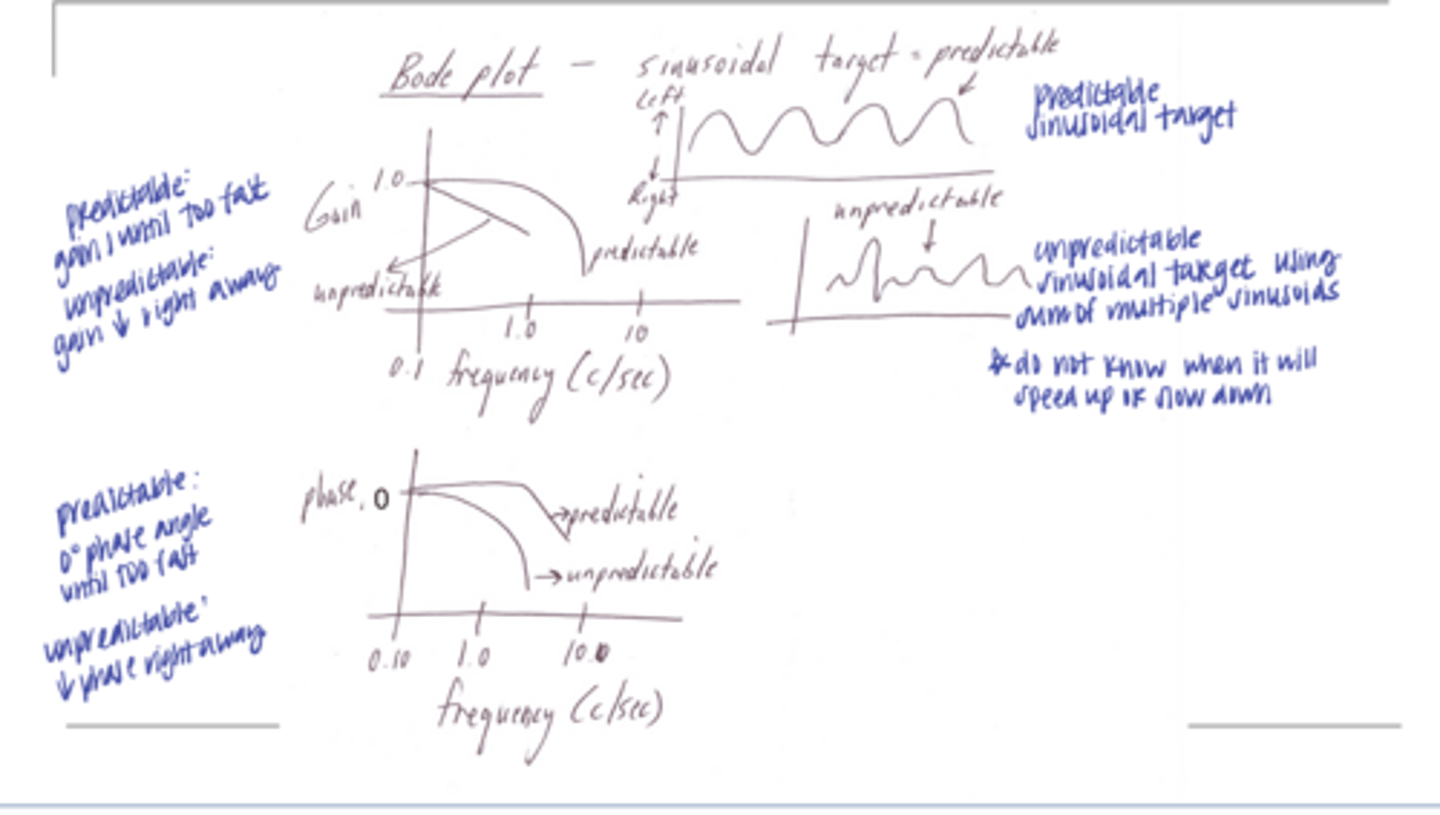 Bode plot - sinusoidal target = predictable
Left
Right
predictable
sinusoidal target
unpredictable
unpredictable
sinusoidal target using
sum of multiple sinusoids
* do not know when it will
speed up or slow down
predictable:
gain 1 until too fast
unpredictable:
gain ↓ right away
Gain
1.0
predictable
unpredictable
0.1
1.0
10
frequency (c/sec)
predictable:
0° phase angle
until too fast
unpredictable:
↓ phase right away
phase. 0
→predictable
→unpredictable
0.10 1.0 10.0
frequency (c/sec)